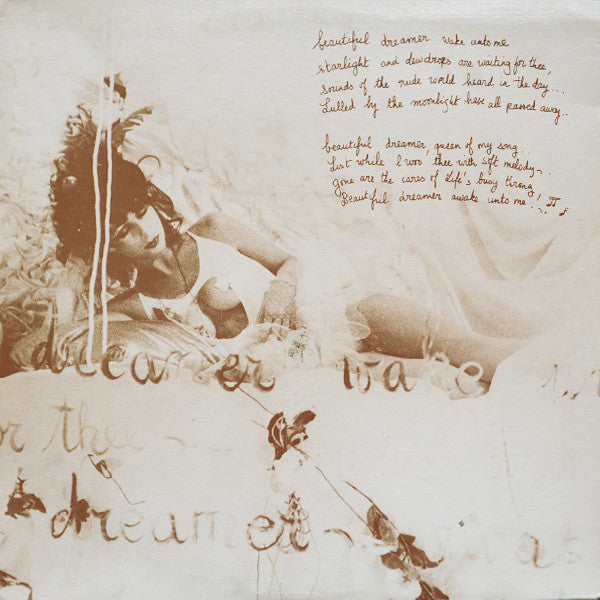 beautiful dreamer wake unto me
starlight and dewdrops are waiting for thee,
sounds of the rude world heard in the day...
Lulled by the moonlight have all passed away..
beautiful dreamer, queen of my song...
List while I woo thee with soft melody~..
Gone are the cares of life's busy throng!
Beautiful dreamer awake unto me~..
dreamer wake un
or thee~
dreamer wa